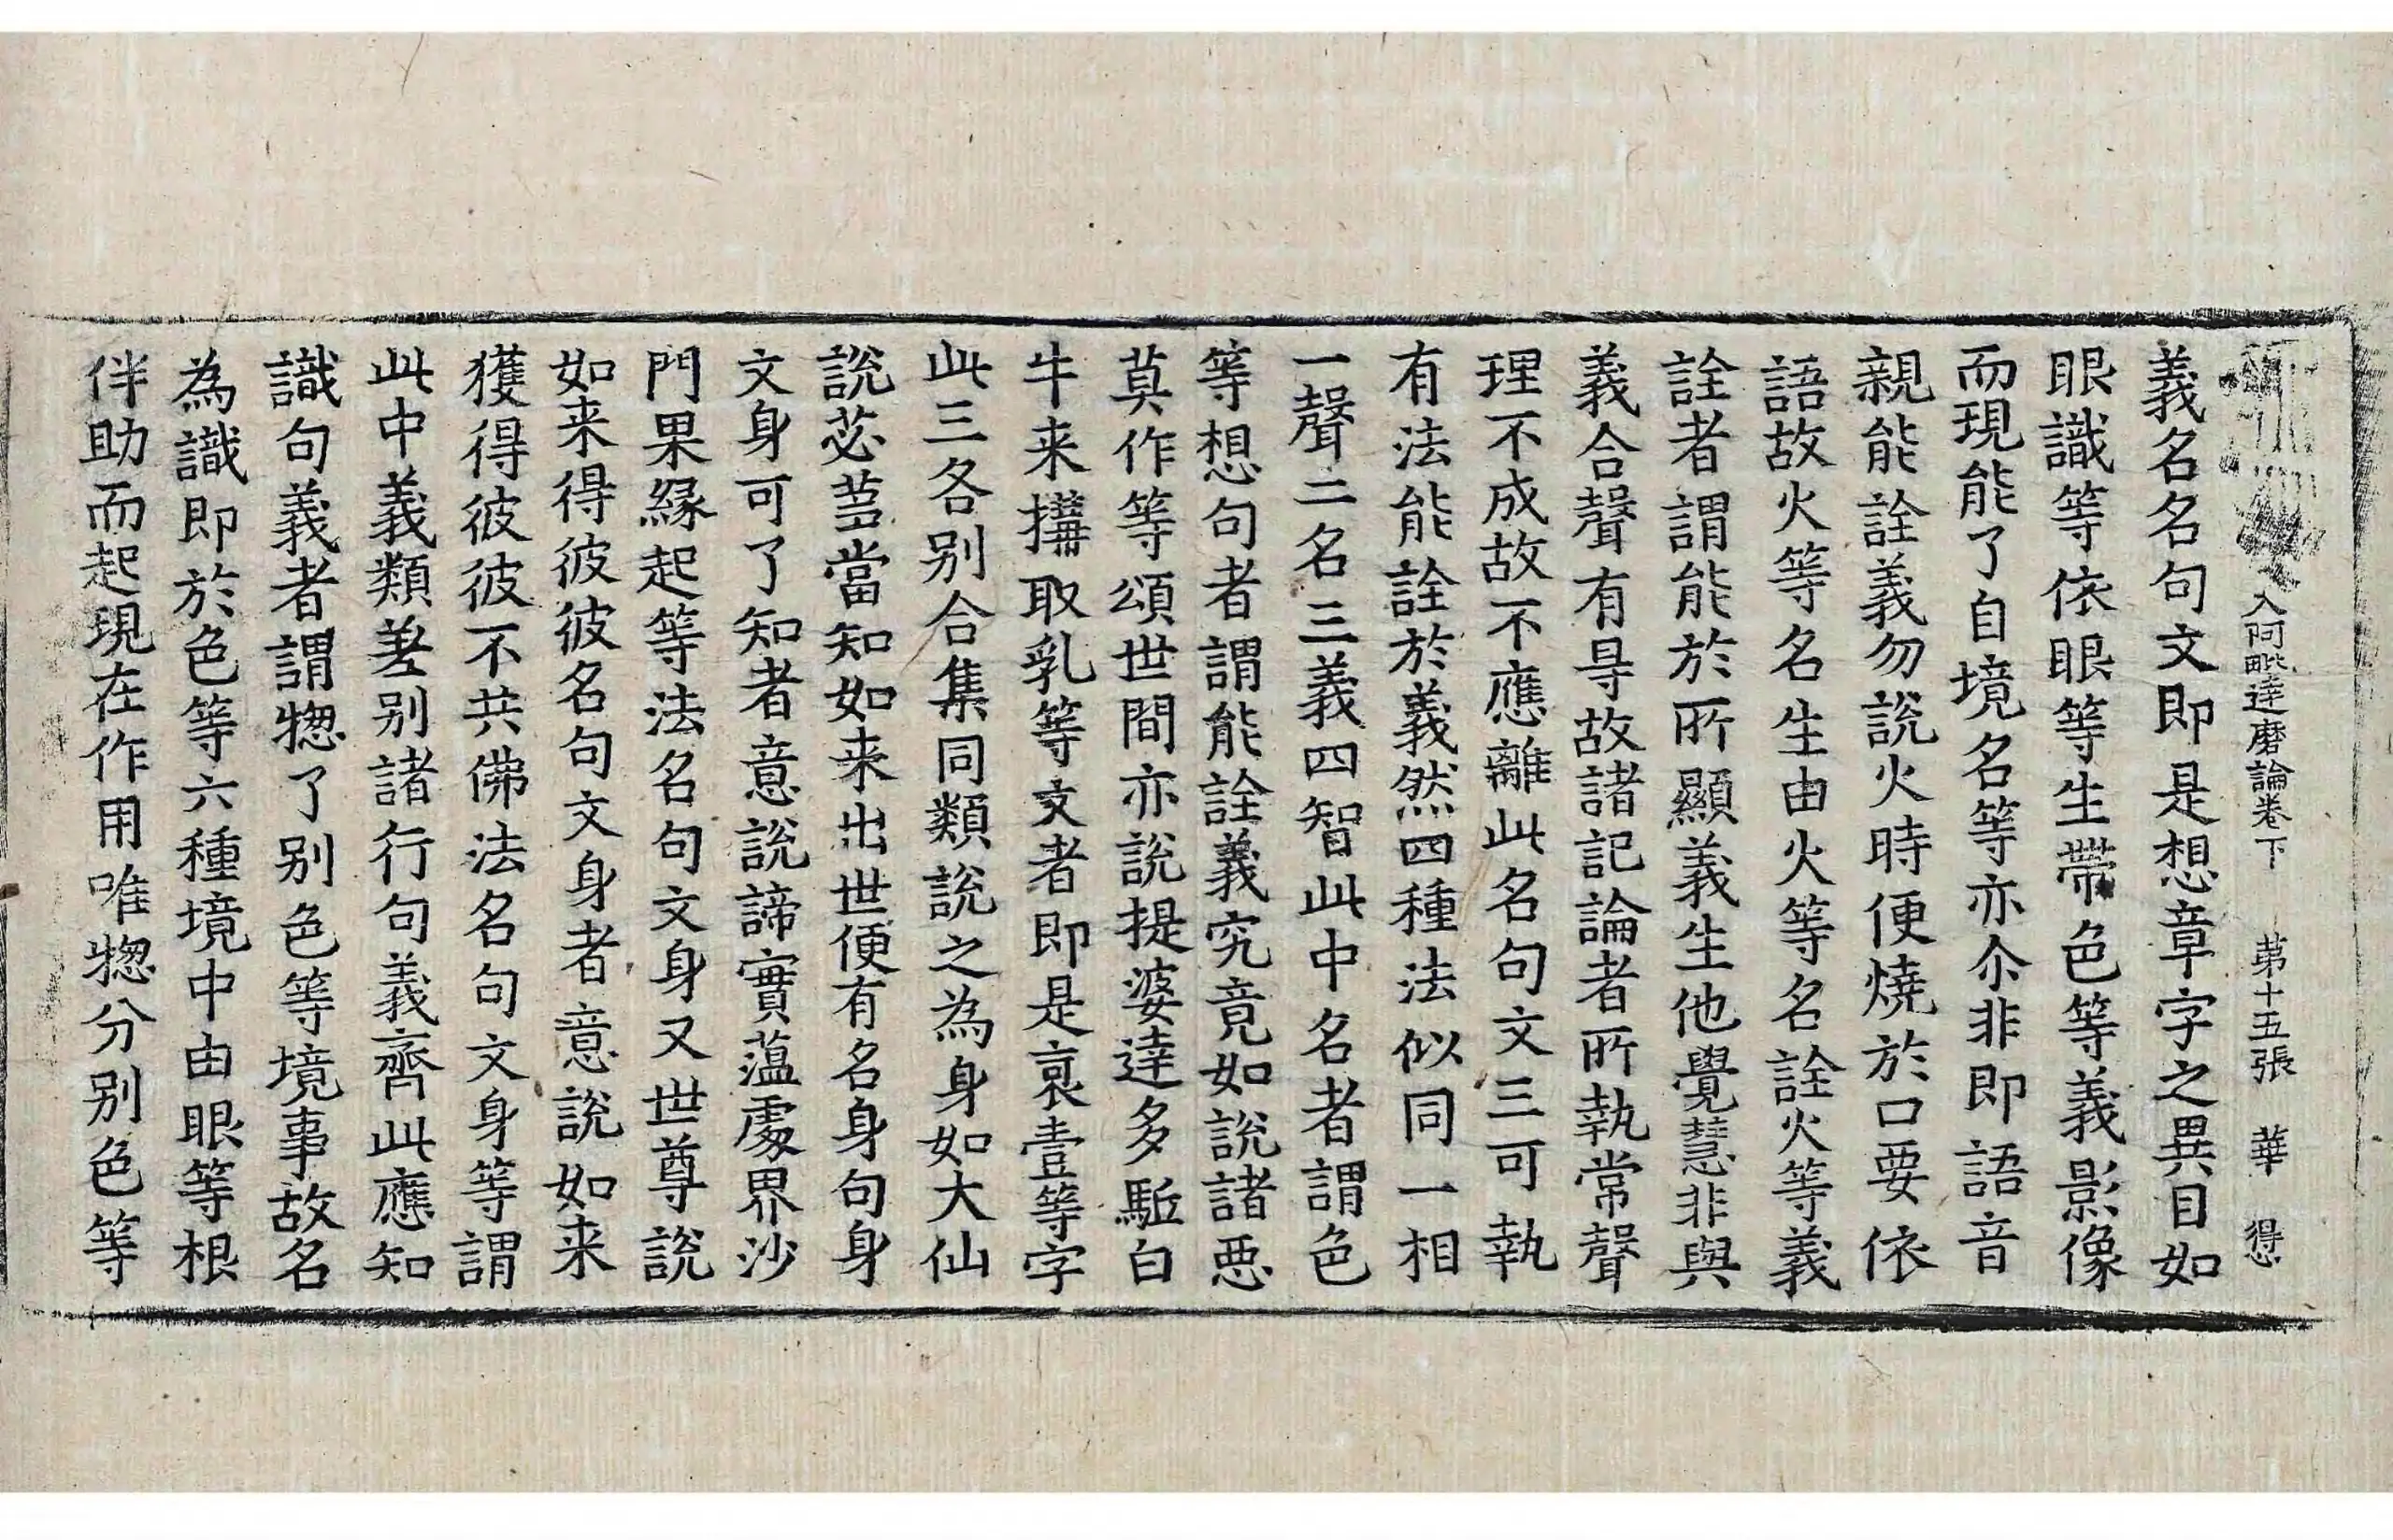 入阿毗達磨論卷下 苐十五張 華 得
義名名句文即是想章字之異目如
眼識等依眼等生帶色等義影像
而現能了自境名等亦尒非即語音
親能詮義勿說火時便燒於口要依
語故火等名生由火等名詮火等義
詮者謂能於所顯義生他覺慧非與
義合聲有㝵故諸記論者所執常聲
理不成故不應離此名句文三可執
有法能詮於義然四種法似同一相
一聲二名三義四智此中名者謂色
等想句者謂能詮義究竟如說諸惡
莫作等頌世間亦說提婆達多駈白
牛来搆取乳等文者即是裒壹等字
此三各別合集同類說之為身如大仙
說苾芻當知如来出世便有名身句身
文身可了知者意說諦實蘊處界沙
門果緣起等法名句文身又世尊說
如来得彼彼名句文身者意說如来
獲得彼彼不共佛法名句文身等謂
此中義類差別諸行句義齊此應知
識句義者謂惣了別色等境事故名
為識即於色等六種境中由眼等根
伴助而起現在作用唯惣分別色等